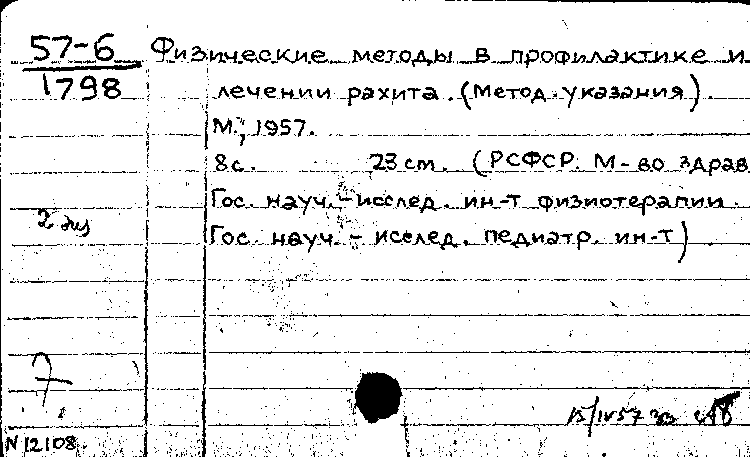 57-6
1798
Физические методы в профилактике и
лечении рахита. (Метод. указания).
М., 1957.
8с. 23 см. (РСФСР. М-во здрав
Гос. науч.-исслед. ин-т физиотерапии.
Гос. науч.-исслед. педиатр. ин-т)
2 экз
7
15/IV57
N 12108.